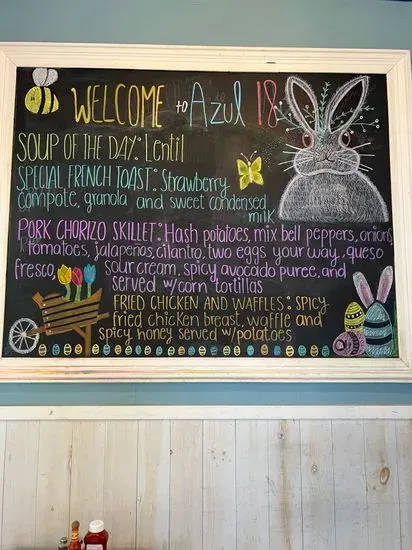 WELCOME to Azul 18
SOUP OF THE DAY: Lentil
SPECIAL FRENCH TOAST: Strawberry
compote, granola, and sweet condensed
milk
PORK CHORIZO SKILLET: Hash potatoes, mix bell peppers, onions,
tomatoes, jalapeños, cilantro, two eggs your way, queso
fresco, sour cream, spicy avocado puree, and
served w/corn tortillas
FRIED CHICKEN AND WAFFLES: SPICY
fried chicken breast, waffle and
spicy honey served w/potatoes